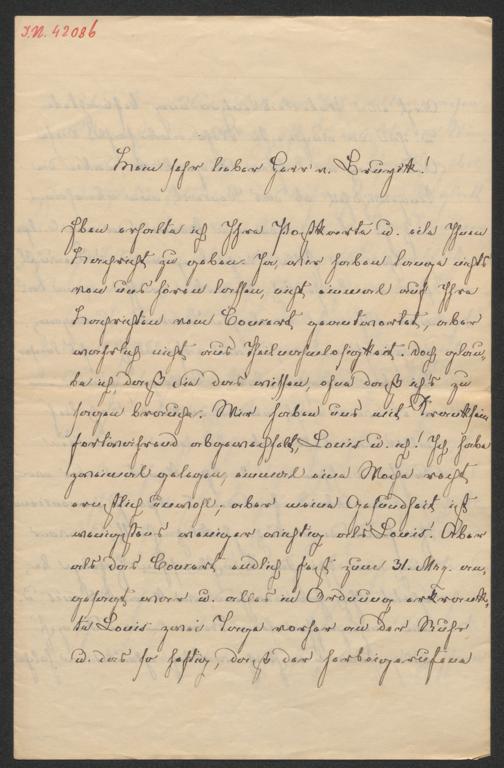 J.N. 42086
Mein sehr lieber Herr v. Bruyck!
Eben erhalte ich Ihre Postkarte u. eile Ihnen
Nachricht zu geben. Ja, wir haben lange nichts
von uns hören lassen, nicht einmal auf Ihre
Nachrichten vom Concert geantwortet, aber
wahrlich nicht aus Theilnahmslosigkeit. Doch glau-
be ich, daß Sie das wissen, ohne daß ich's zu
sagen brauche. Wir haben uns mit Kranksein
fortwährend abgewechselt, Louis u. ich! Ich habe
zweimal gelegen, einmal eine Woche recht
ernstlich unwohl, aber meine Gesundheit ist
wenigstens weniger wichtig als Louis'. Aber
als das Concert endlich fest zum 31. Mrz. an-
gesagt war u. alles in Ordnung erkrank-
te Louis zwei Tage vorher an der Ruhr
u. das so heftig, daß der herbeigerufene